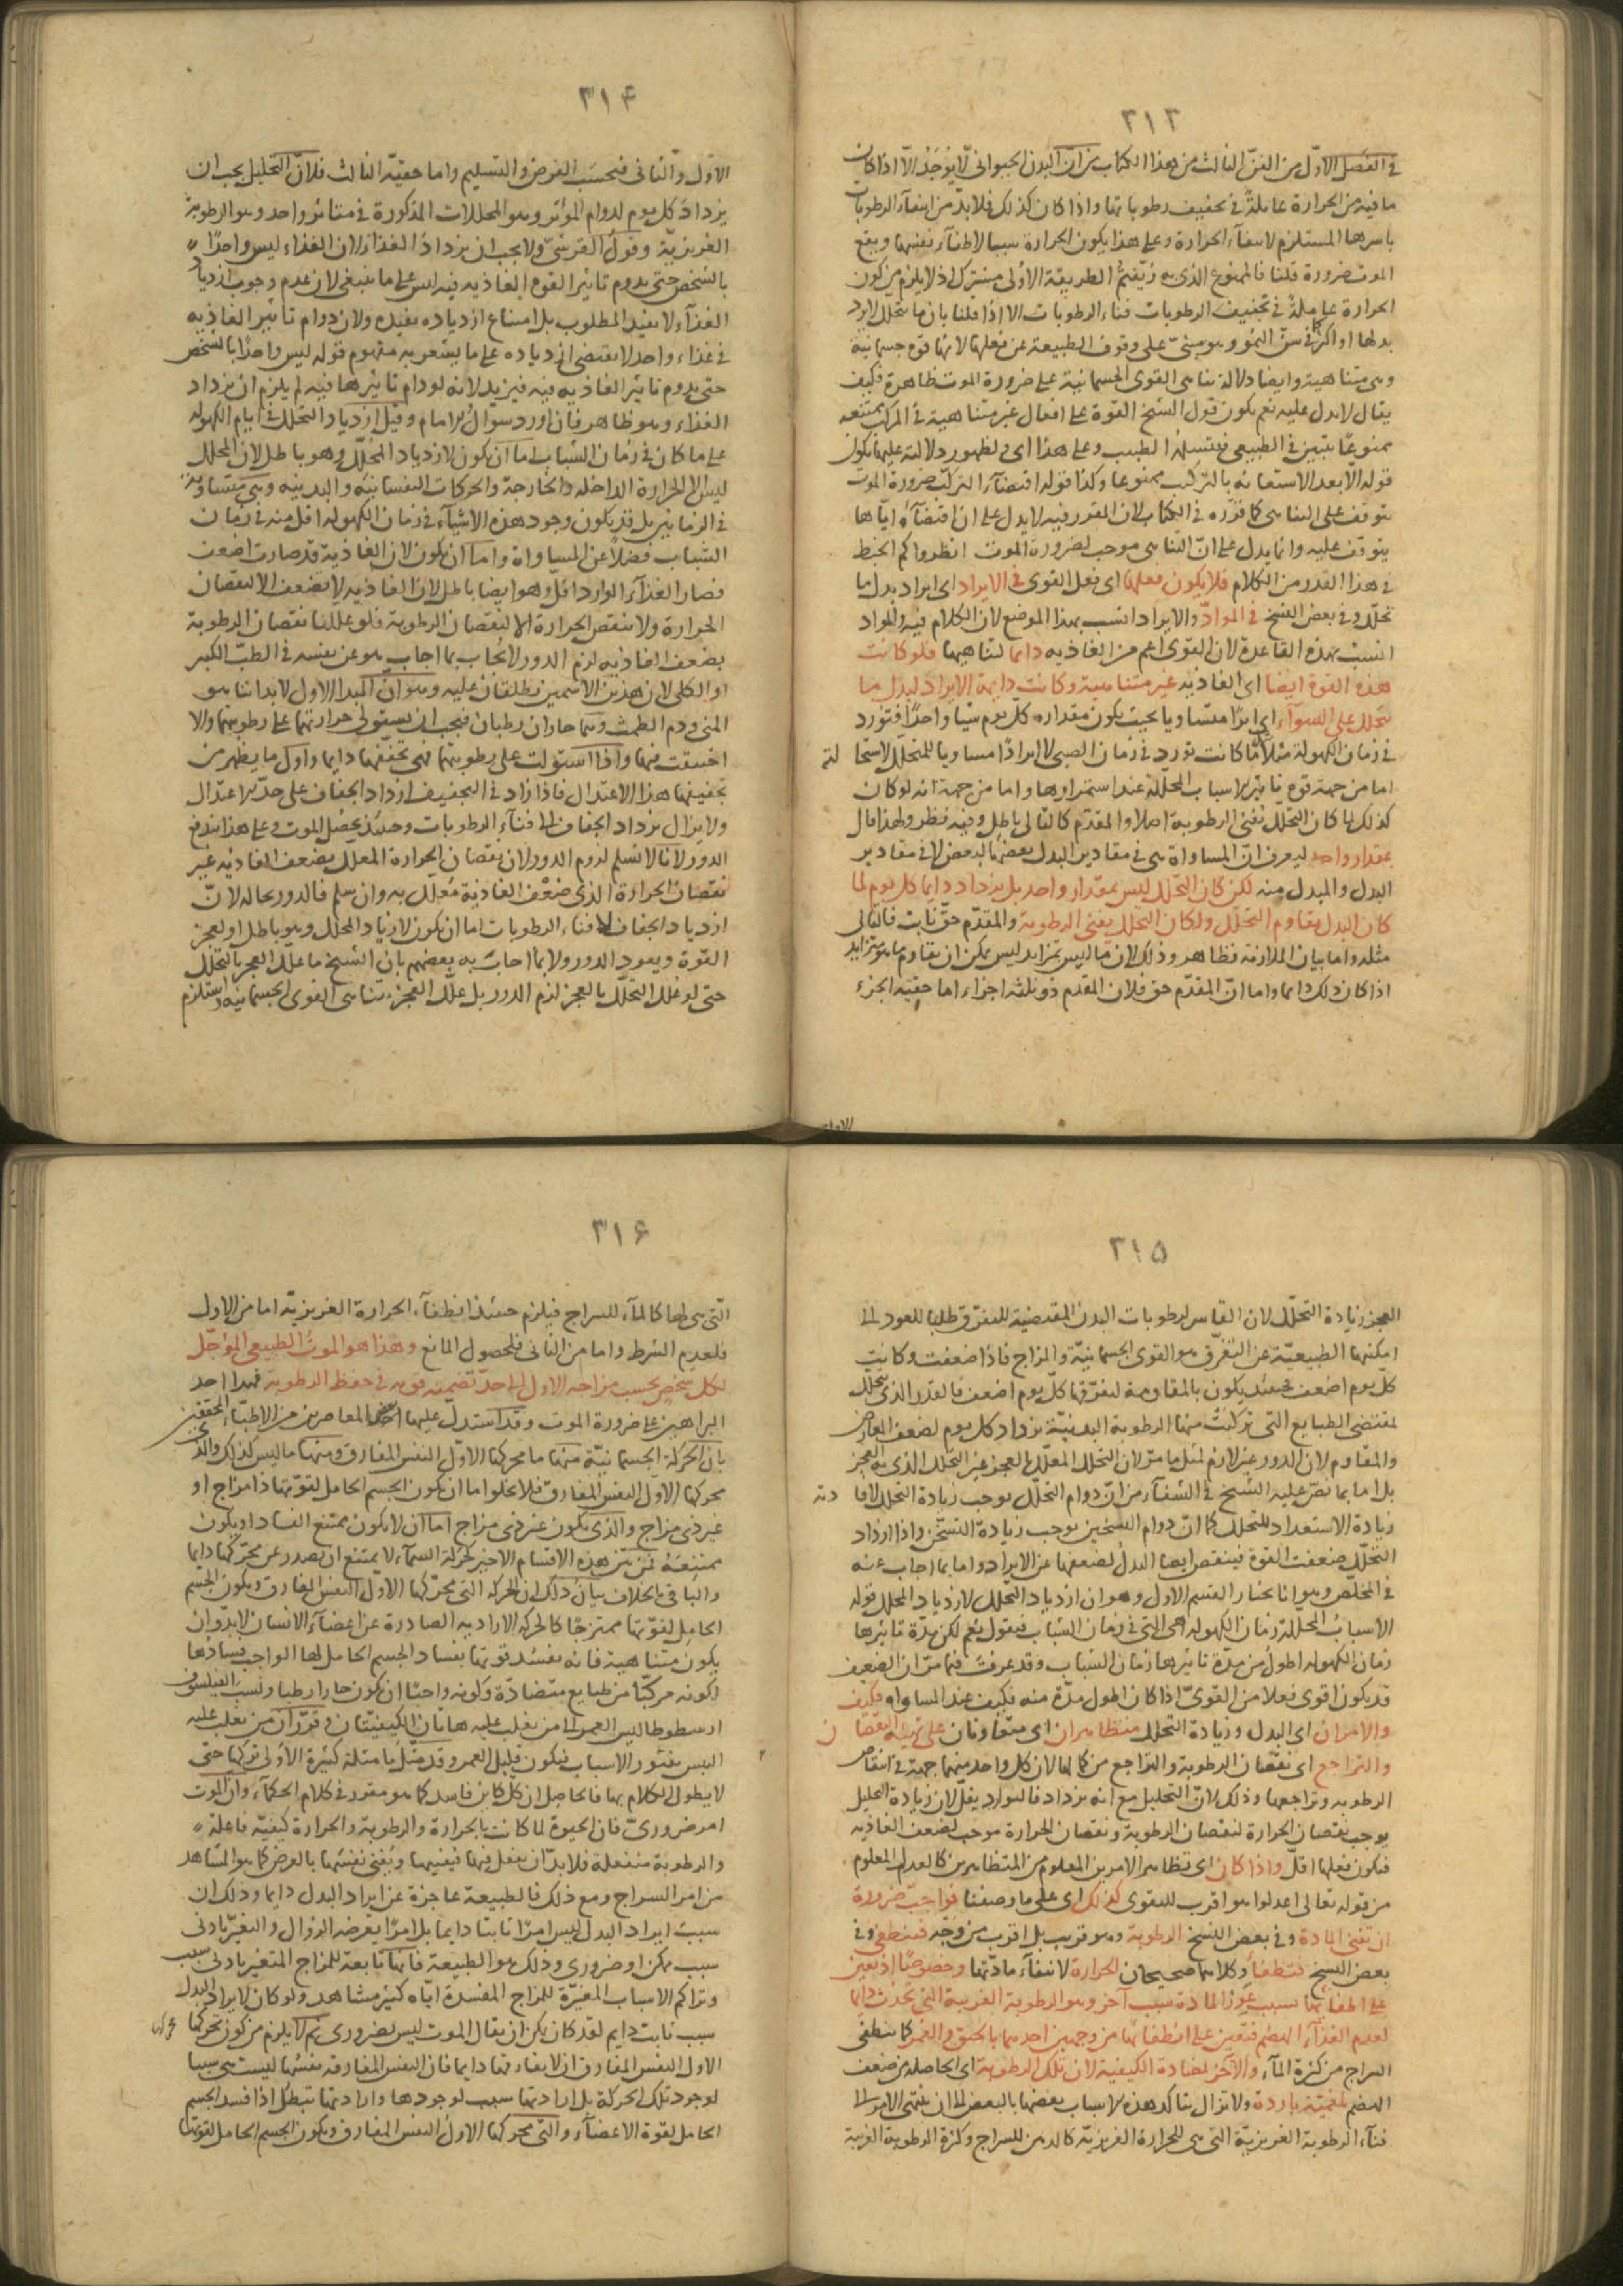 ٣١٣
في الفصل الاول من الفن الثالث من هذا الكتاب من ان البدن الحيواني لا يوجد الا اذا كان
ما فيه من الحرارة عاملة في تجفيف رطوباتها واذا كان كذلك فلا بد من انتفاء الرطوبات
باسرها المستلزم لانتفاء الحرارة وعلى هذا يكون الحرارة سببا لاطفاء نفسها ويقع
الموت ضرورة قلنا فالممنوع الذي به زيفتم الطريقة الاولى مشترك اذ لا يلزم من كون
الحرارة عاملة في تجفيف الرطوبات فناء الرطوبات الا اذا قلنا بان ما يتحلل لا يرد
بدلها او اكثر في سن النمو وهو مبني على وقوف الطبيعة عن فعلها لانها قوة جسمانية
وهي متناهية وايضا دلالة تناهي القوى الجسمانية على ضرورة الموت ظاهرة فكيف
يقال لا يدل عليه نعم يكون قول الشيخ القوة على افعال غير متناهية في المركب ممتنعه
ممنوعا يتبين في الطبيعي فيتسلمه الطبيب وعلى هذا اي ولظهور دلالته عليها يكون
قوله الا بعد الاستعانة بالتركيب ممنوعا وكذا قوله اقتضاء التركب ضرورة الموت
يتوقف على التناهي كما قرره في الكتاب لان المقرر فيه لا يدل على ان اقتضاءه اياها
يتوقف عليه وانما يدل على ان التناهي موجب لضرورة الموت انظروا كم الخبط
في هذا القدر من الكلام فلا يكون فعلها اي فعل القوى في الايراد اي ايراد بدل ما
تحلل وفي بعض النسخ في المواد والايراد انسب بهذا الموضع لان الكلام فيه والمواد
انسب بهذه القاعدة لان القوى اعم من الغاذيه دايما لتناهيها فلو كانت
هذه القوة ايضا اي الغاذية غير متناهية وكانت دايمة الايراد لبدل ما
يتحلل على السواء اي ايرادا متساويا بحيث يكون مقداره كل يوم شيئا واحدا فتورد
في زمان الكهولة مثلا ما كانت تورد في زمان الصبى لا ايرادا مساويا للمتحلل لاستحا لته
اما من جهة قوة تاثير الاسباب المحللة عند استمرارها واما من جهة انه لو كان
كذلك لما كان التحلل يفني الرطوبة اصلا والمقدم كالتالي باطل وفيه نظر ولهذا قال
بمقدار واحد ليعرف ان المساواة هي في مقادير البدل بعضها لبعض لا في مقادير
البدل والمبدل منه لكن كان التحلل ليس بمقدار واحد بل يزداد دايما كل يوم لما
كان البدل يقاوم التحلل ولكان التحلل يفني الرطوبة والمقدم حق ثابت فالتالي
مثله واما بيان الملازمة فظاهر وذلك لان ما ليس بمتزايد ليس يمكن ان يقاوم ما يتزايد
اذا كان ذلك دايما واما ان المقدم حق فلان المقدم ذو ثلثه اجزاء اما حقية الجزء
٣١۴
الاول والثاني فبحسب الفرض والتسليم واما حقية الثالث فلان التحليل يجب ان
يزداد كل يوم لدوام المؤثر وهو المحللات المذكورة في متاثر واحد وهو الرطوبة
الغريزية وقول القرشي ولا يجب ان يزداد الغذاء لان الغذاء ليس واحدا
بالشخص حتى يدوم تاثير القوة الغاذيه فيه ليس على ما ينبغي لان عدم وجوب ازدياد
الغذاء لا يفيد المطلوب بل امتناع ازدياده يفيده ولان دوام تاثير الغاذيه
في غذاء واحد لا يقتضي ازدياده على ما يشعر به مفهوم قوله ليس واحدا بالشخص
حتى يدوم تاثير الغاذيه فيه فيزيد لانه لو دام تاثيرها فيه لم يلزم ان يزداد
الغذاء وهو ظاهر فان اورد سؤال الامام وقيل ازدياد التحلل في ايام الكهوله
على ما كان في زمان الشباب اما ان يكون لازدياد المحلل وهو باطل لان المحلل
ليس الا الحرارة الداخلة والخارجة والحركات النفسانيه والبدنيه وهي متساوية
في الزمانين بل قد يكون وجود هذه الاشياء في زمان الكهوله اقل منه في زمان
الشباب فضلا عن المساواة واما ان يكون لان الغاذية قد صارت اضعف
فصار الغذاء الوارد اقل وهو ايضا باطل لان الغاذيه لا تضعف الا لنقصان
الحرارة ولا تنقص الحرارة الا لنقصان الرطوبة فلو عللنا نقصان الرطوبة
بضعف الغاذيه لزم الدور لا يجاب بما اجاب هو عن نفسه في الطب الكبير
او الكلي لان هذين الاسمين يطلقان عليه وهو ان المبدا الاول لابداننا هو
المني ودم الطمث وهما حاران رطبان فيجب ان يستولي حرارتهما على رطوبتهما والا
اختنقت فيها واذا استولت على رطوبتهما فهي تجففها دايما واول ما يظهر من
تجفيفها هذا الاعتدال فاذا زاد في التجفيف ازداد الجفاف على حد الاعتدال
ولا يزال يزداد الجفاف الى فناء الرطوبات وحينئذ يحصل الموت وعلى هذا يندفع
الدور لانا لا نسلم لزوم الدور لان نقصان الحرارة المعلل بضعف الغاذيه غير
نقصان الحرارة الذي ضعف الغاذية معلل به وان سلم فالدور بحاله لان
ازدياد الجفاف الى فناء الرطوبات اما ان يكون لازدياد المحلل وهو باطل او لعجز
القوة ويعود الدور ولا بما اجاب به بعضهم بان الشيخ ما علل العجز بالتحلل
حتى لو علل التحلل بالعجز لزم الدور بل علل العجز بتناهي القوى الجسمانيه واستلزم
٣١۵
العجز زيادة التحلل لان القاسر لرطوبات البدن المقتضية للتفرق طلبا للعود الى
امكنتها الطبيعية عن التفرق هو القوى الجسمانية والمزاج فاذا ضعفت وكانت
كل يوم اضعف فحينئذ يكون بالمقاومة لتفرقها كل يوم اضعف فالقدر الذي يتحلل
لمقتضى الطبايع التي تركبت منها الرطوبة البدنية يزداد كل يوم لضعف المعارض
والمقاوم لان الدور غير لازم لمثل ما مر لان التحلل المعلل بالعجز غير التحلل الذي به العجز
بل اما بما نص عليه الشيخ في الشفاء من ان دوام التحلل يوجب زيادة التحلل لافا دته
زيادة الاستعداد للتحلل كما ان دوام التسخين يوجب زيادة التسخن واذا ازداد
التحلل ضعفت القوة فينقص ايضا البدل لضعفها عن الايراد واما بما اجاب عنه
في الملخص وهو انا نختار القسم الاول وهو ان ازدياد التحلل لازدياد المحلل قوله
الاسباب المحللة زمان الكهوله هي التي في زمان الشباب فيقول نعم لكن مدة تاثيرها
زمان الكهوله اطول من مدة تاثيرها زمان الشباب وقد عرفت فيما مر ان الضعيف
قد يكون اقوى فعلا من القوي اذا كان اطول مدة منه فكيف عند المساواه فكيف
والامران اي البدل وزيادة التحلل متظاهران اي متعاونان على تهيئة النقصان
والتراجع اي نقصان الرطوبة والتراجع من كمالها لان كل واحد منهما جهة في انتقاص
الرطوبه وتراجعها وذلك لان التحليل مع انه يزداد فالوارد يقل لان زيادة التحليل
يوجب نقصان الحرارة لنقصان الرطوبة ونقصان الحرارة موجب لضعف الغاذيه
فيكون فعلها اقل واذا كان اي تظاهر الامرين المعلوم من المتظاهرين كالعدل المعلوم
من قوله تعالى اعدلوا هو اقرب للتقوى كذلك اي على ما وصفنا فواجب ضرورة
ان تفنى المادة وفي بعض النسخ الرطوبة وهو قريب بل اقرب من وجه فتنطفي وفي
بعض النسخ فتنطفئ وكلاهما صحيحان الحرارة لانتفاء مادتها وخصوصا اذ يعين
على اطفائها بسبب عوز المادة سبب آخر وهو الرطوبة الغريبة التي تحدث دايما
لعدم الغذاء الهضم فتعين على انطفائها من وجهين احدهما بالخنق والغمر كما ينطفي
السراج من كثرة الماء والآخر لمضادة الكيفية لان تلك الرطوبة اي الحاصله من ضعف
الهضم بلغمية باردة ولا تزال يتاكد هذه الاسباب بعضها بالبعض الى ان ينتهي الامر الى
فناء الرطوبة الغريزية التي هي للحرارة الغريزية كالدهن للسراج وكثرة الرطوبة الغريبة
٣١۶
التي هي لها كالماء للسراج فيلزم حينئذ انطفاء الحرارة الغريزية اما من الاول
فلعدم الشرط واما من الثاني فلحصول المانع وهذا هو الموت الطبيعي المؤجل
لكل شخص بحسب مزاجه الاول الى حد تضمنه قوته في حفظ الرطوبة فهذا احد
البراهين على ضرورة الموت وقد استدل عليها بعض المعاصرين من الاطباء المحققين
بان الحركة الجسمانية منها ما محركها الاول النفس المفارق ومنها ما ليس كذلك والذي
محركها الاول النفس المفارق فلا يخلو اما ان يكون الجسم الحامل لقوتها ذا مزاج او
غير ذي مزاج والذي يكون غير ذي مزاج اما ان لا يكون ممتنع الفساد او يكون
ممتنعة فمن بين هذه الاقسام الاخير كحركة السماء لا يمتنع ان تصدر عن محركها دايما
والباقي بالخلاف بيان ذلك ان الحركه التي محركها الاول النفس المفارق ويكون الجسم
الحامل لقوتها ممتزجا كالحركه الاراديه الصادرة عن اعضاء الانسان لا بد وان
يكون متناهية فانه تفسد قوتها بفساد الجسم الحامل لها الواجب فسادها
لكونه مركبا من طبايع متضادة وكونه واجبا ان يكون حارا رطبا ونسب الفيلسوف
ارسطوطاليس العمر الى من يغلب عليه هاتان الكيفيتان وقرر ان من يغلب عليه
اليبس بتقدر الاسباب فيكون قليل العمر وقد مثل بامثلة كثيرة الاولى تركها حتى
لا يطول الكلام بها فالحاصل ان كل كاين فاسد كما هو مقرر في كلام الحكماء وان الموت
امر ضروري فان الحيوة لما كانت بالحرارة والرطوبة والحرارة كيفية فاعلة
والرطوبة منفعلة فلا بد ان يفعل فيها فيفنيها ويفني نفسها بالعرض كما هو المشاهد
من امر السراج ومع ذلك فالطبيعة عاجزة عن ايراد البدل دايما وذلك ان
سبب ايراد البدل ليس امرا ثابتا دايما بل امرا يعرضه الزوال والتغير بادنى
سبب ممكن او ضروري وذلك هو الطبيعة فانها تابعة للمزاج المتغير بادنى سبب
وتراكم الاسباب المغيرة للمزاج المفسدة اياه كثير مشاهد ولو كان لايراد البدل
سبب ثابت دايم لقد كان يمكن ان يقال الموت ليس بضروري ثم لا يلزم من كون محركها
الاول النفس المفارق ان لا يفارقها دايما فان النفس المفارقه نفسها ليست هي سببا
لوجود تلك الحركة بل ارادتها سبب لوجودها وارادتها تبطل اذا فسد الجسم
الحامل لقوة الاعضاء والتي محركها الاول النفس المفارق ويكون الجسم الحامل لقوتها